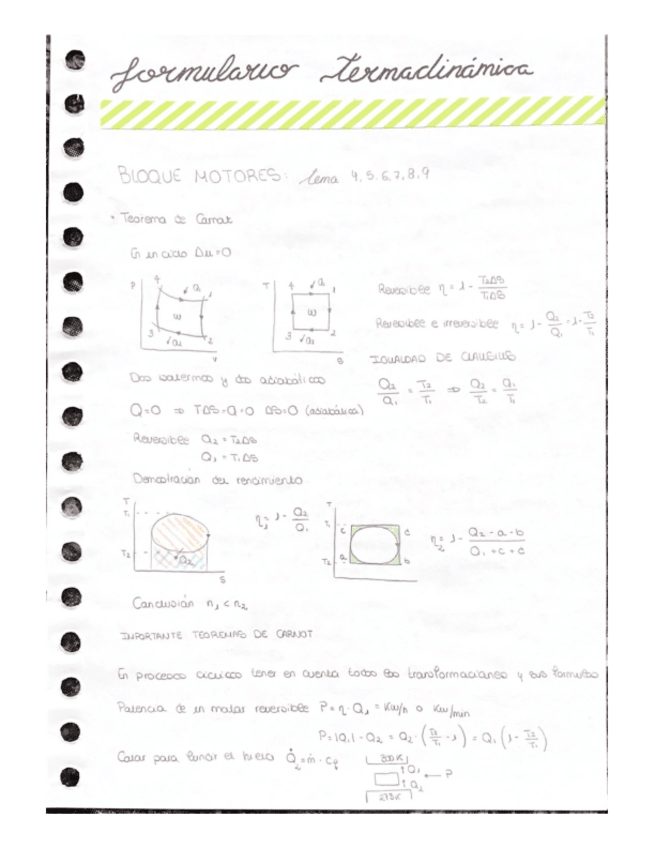 Formulario Termodinámica
BLOQUE MOTORES: Tema 4,5,6,7,8,9
• Teorema de Carnot
En un ciclo Δu=0
P 4 Q₁ 1 W 3 Q₂ 2 V
T 4 Q₁ 1 W 3 Q₂ 2 S
Reversible η = 1 - T₂ΔS/T₁ΔS
Reversible e irreversible η = 1 - Q₂/Q₁ = 1 - T₂/T₁
IGUALDAD DE CLAUSIUS
Q₂/Q₁ = T₂/T₁ ⇒ Q₂/T₂ = Q₁/T₁
Dos isotermos y dos adiabáticos
Q=0 ⇒ TΔS=Q=0 ΔS=0 (adiabática)
Reversible Q₂ = T₂ΔS
Q₁ = T₁ΔS
Demostración del rendimiento
T T₁ T₂ Q₂ S
η₁ = 1 - Q₂/Q₁
T T₁ c c T₂ a b
η₂ = 1 - Q₂-a-b/Q₁+c+c
Conclusión η₁ < η₂
IMPORTANTE TEOREMAS DE CARNOT
En procesos cíclicos tener en cuenta todas las transformaciones y sus formulas
Potencia de un motor reversible P = η · Q₁ = Kw/h o Kw/min
P = |Q₁| - Q₂ = Q₂ · (T₁/T₂ - 1) = Q₁ (1 - T₂/T₁)
Calor para fundir el hielo Q̇₂ = ṁ · cf
300K
Q₁ P
Q₂
273K